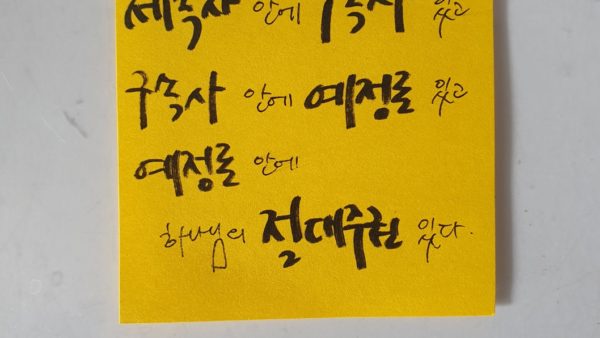 세속사 안에 구속사 있고
구속사 안에 예정론 있고
예정론 안에
하나님의 절대주권 있다.